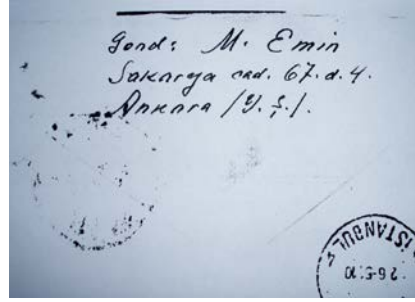 Gönd: M. Emin
Sakarya cad. 67. d. 4.
Ankara /Y. Ş./.
İSTANBUL 4
26.5.10